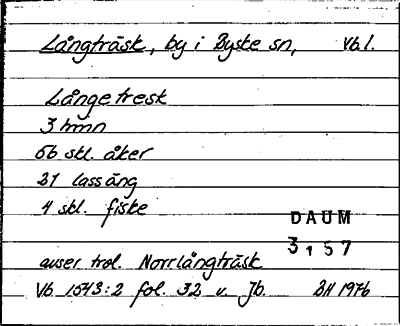 Långträsk, by i Byske sn, Vb.l.
Långe tresk
3 hmn
56 skl. åker
21 lass äng
4 skl. fiske
DAUM
3157
avser trol. Norrlångträsk
Vb 1543:2 fol. 32 v. Jb. BH 1976